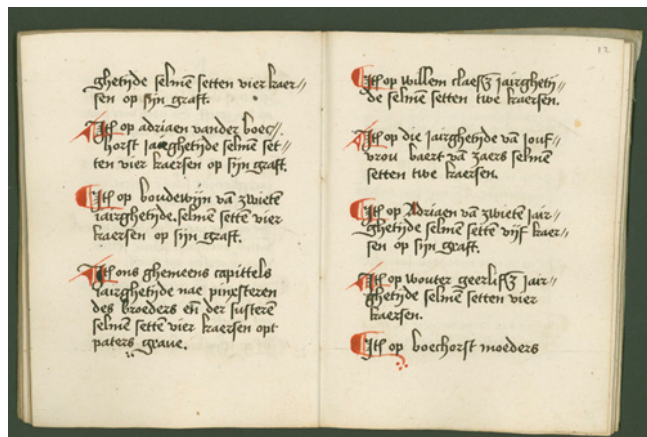 ghetijde selmē setten vier kaer//
sen op sijn graft.
Itē op adriaen vander boec//
horst jaerghetijde selmē set//
ten vier kaersen op sijn graft.
Itē op boudewijn vā zwietē
iairghetijde. selmē settē vier
kaersen op sijn graft.
Itē ons ghemeens capittels
iairghetijde nae pinxsteren
des broeders eñ der susterē
selmē settē vier kaersen opt
paters graue.
12
Itē op willem claesz iairghetij//
de selmē setten twe kaersen.
Itē op die iairghetijde vā iouf//
vrou baert vā zaers selmē
setten twe kaersen.
Itē op Adriaen vā zwietē iair//
ghetijde selmē settē vijf kaer//
sen op sijn graft.
Itē op wouter geerlifsz iair//
ghetijde selmē setten vier
kaersen.
Itē op boechorst moeders